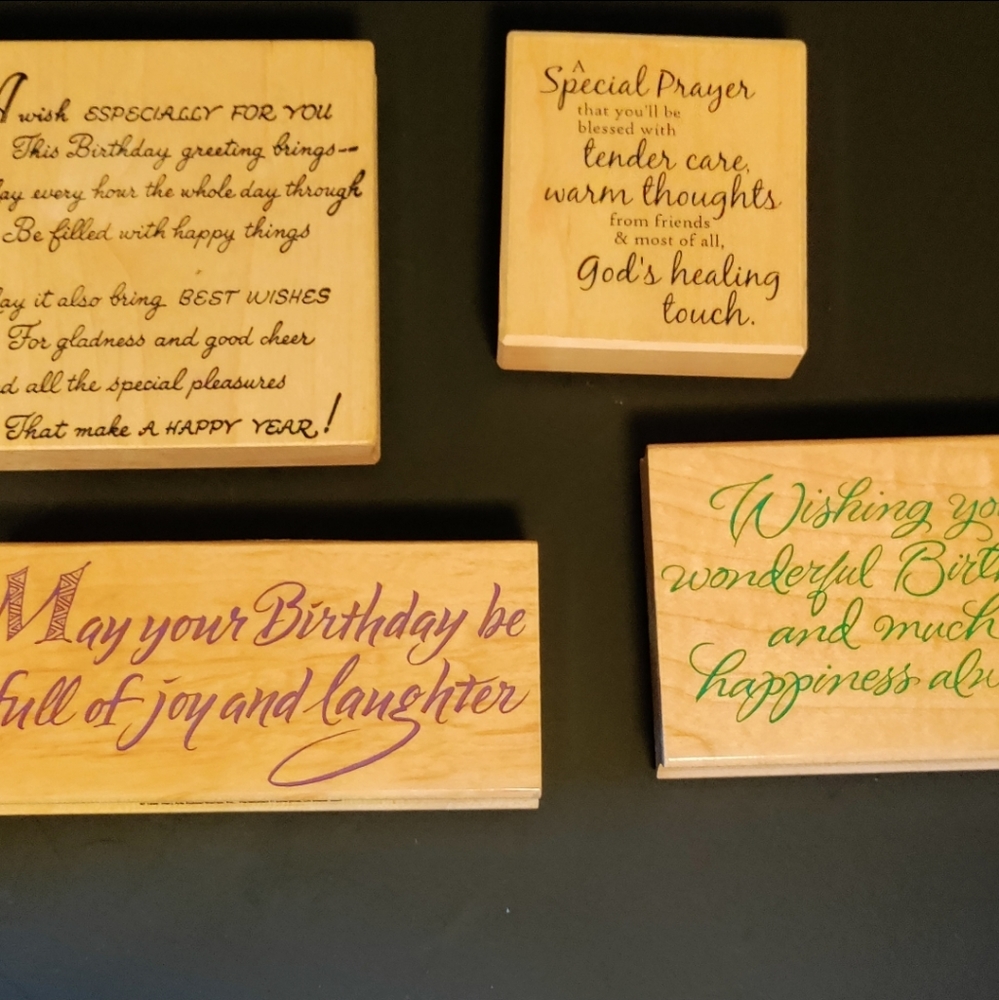 A wish ESPECIALLY FOR YOU
This Birthday greeting brings--
ay every hour the whole day through
Be filled with happy things
ay it also bring BEST WISHES
For gladness and good cheer
d all the special pleasures
That make A HAPPY YEAR!
A
Special Prayer
that you'll be
blessed with
tender care,
warm thoughts
from friends
& most of all,
God's healing
touch.
May your Birthday be
full of joy and laughter
Wishing yo
wonderful Birt
and much
happiness alw